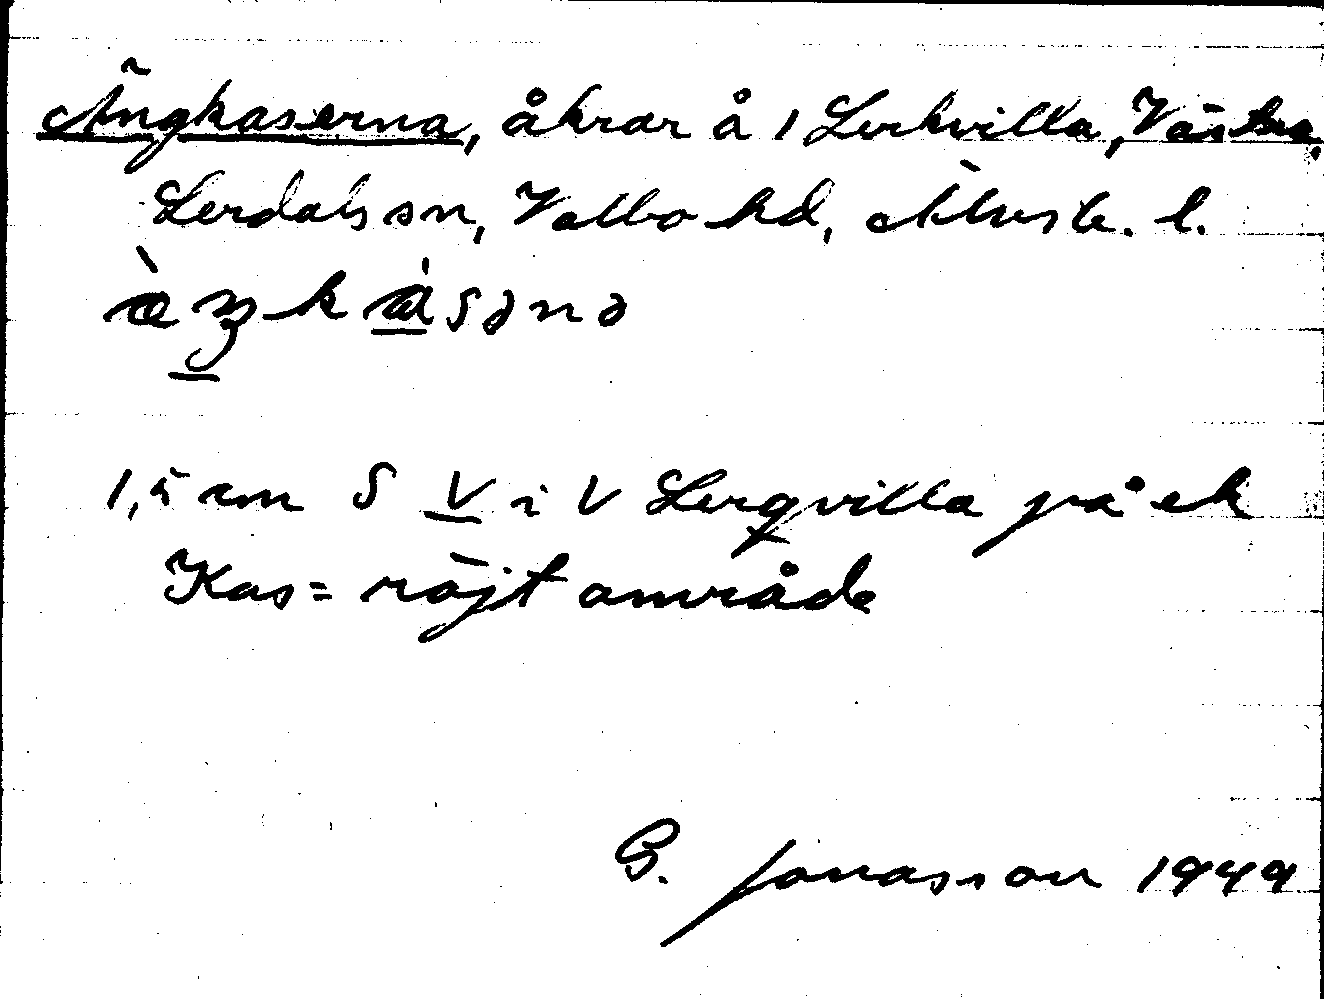 Ängkaserna, åkrar å 1 Lerkvilla, Västra,
Lerdals sn, Valbo hd, Älvsb. l.
æ̀ŋkásəna
1,5 cm S V i V Lerqvilla på ek
Kas = röjt område
G. Jonasson 1949